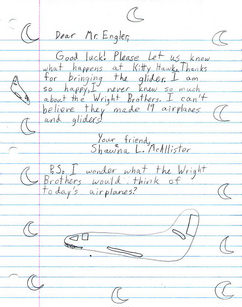 Dear Mr Engler,
Good luck! Please let us know
what happens at Kitty Hawk. Thanks
for bringing the glider. I am
so happy. I never knew so much
about the Wright Brothers. I can't
believe they made 19 airplanes
and gliders!
Your friend,
Shawna L. McAllister
P.S. I wonder what the Wright
Brothers would think of
today's airplanes?